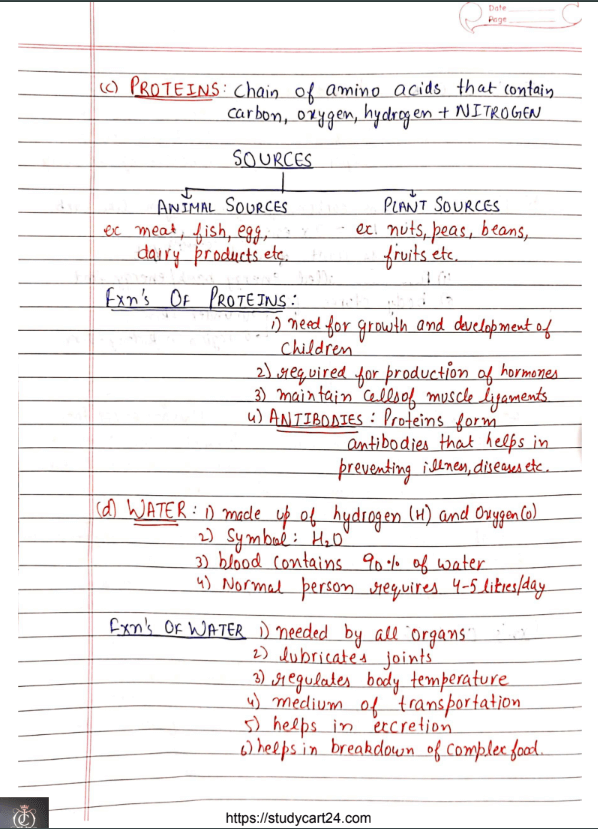 Date
Page
(c) PROTEINS: chain of amino acids that contain
carbon, oxygen, hydrogen + NITROGEN
SOURCES
ANIMAL SOURCES PLANT SOURCES
ex meat, fish, egg, ex: nuts, peas, beans,
dairy products etc. fruits etc.
Fxn's OF PROTEINS:
1) need for growth and development of
children
2) required for production of hormones
3) maintain cells of muscle ligaments
4) ANTIBODIES: Proteins form
antibodies that helps in
preventing illness, diseases etc.
(d) WATER: 1) made up of hydrogen (H) and Oxygen (O)
2) Symbol: H₂O
3) blood contains 90% of water
4) Normal person requires 4-5 litres/day
Fxn's OF WATER 1) needed by all organs
2) lubricates joints
3) regulates body temperature
4) medium of transportation
5) helps in excretion
6) helps in breakdown of complex food.
https://studycart24.com